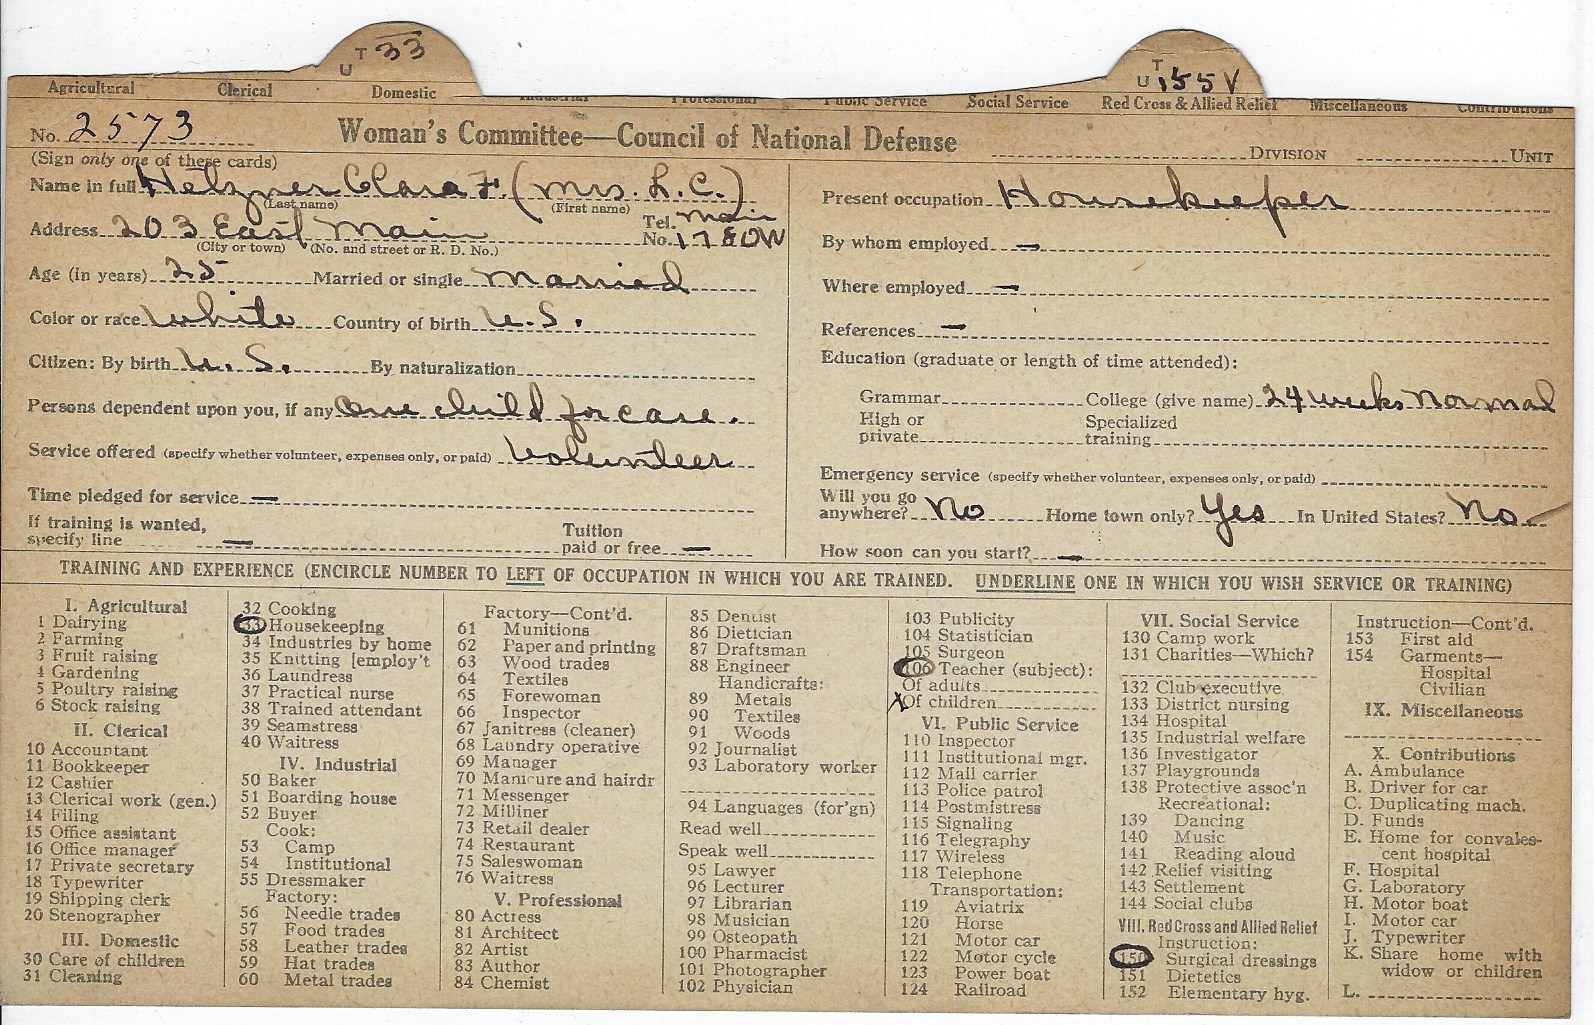 T
U 33
T
U 155 V
Agricultural Clerical Domestic Industrial Professional Public Service Social Service Red Cross & Allied Relief Miscellaneous Contributions
No. 2573
Woman's Committee—Council of National Defense
DIVISION UNIT
(Sign only one of these cards)
Name in full Helzner Clara F. (Mrs. L.C.)
(Last name) (First name)
Address 203 East Main
Tel. No. Main 1780W
(City or town) (No. and street or R. D. No.)
Age (in years) 25 Married or single Married
Color or race White Country of birth U.S.
Citizen: By birth U. S. By naturalization
Persons dependent upon you, if any One child for care.
Service offered (specify whether volunteer, expenses only, or paid) Volunteer
Time pledged for service —
If training is wanted, specify line — Tuition paid or free —
Present occupation Housekeeper
By whom employed —
Where employed —
References —
Education (graduate or length of time attended):
Grammar College (give name) 24 weeks Normal
High or private Specialized training
Emergency service (specify whether volunteer, expenses only, or paid)
Will you go anywhere? No Home town only? Yes In United States? No
How soon can you start? —
TRAINING AND EXPERIENCE (ENCIRCLE NUMBER TO LEFT OF OCCUPATION IN WHICH YOU ARE TRAINED. UNDERLINE ONE IN WHICH YOU WISH SERVICE OR TRAINING)
I. Agricultural
1 Dairying
2 Farming
3 Fruit raising
4 Gardening
5 Poultry raising
6 Stock raising
II. Clerical
10 Accountant
11 Bookkeeper
12 Cashier
13 Clerical work (gen.)
14 Filing
15 Office assistant
16 Office manager
17 Private secretary
18 Typewriter
19 Shipping clerk
20 Stenographer
III. Domestic
30 Care of children
31 Cleaning
32 Cooking
33 Housekeeping
34 Industries by home
35 Knitting [employ't
36 Laundress
37 Practical nurse
38 Trained attendant
39 Seamstress
40 Waitress
IV. Industrial
50 Baker
51 Boarding house
52 Buyer
Cook:
53 Camp
54 Institutional
55 Dressmaker
Factory:
56 Needle trades
57 Food trades
58 Leather trades
59 Hat trades
60 Metal trades
Factory—Cont'd.
61 Munitions
62 Paper and printing
63 Wood trades
64 Textiles
65 Forewoman
66 Inspector
67 Janitress (cleaner)
68 Laundry operative
69 Manager
70 Manicure and hairdr
71 Messenger
72 Milliner
73 Retail dealer
74 Restaurant
75 Saleswoman
76 Waitress
V. Professional
80 Actress
81 Architect
82 Artist
83 Author
84 Chemist
85 Dentist
86 Dietician
87 Draftsman
88 Engineer
Handicrafts:
89 Metals
90 Textiles
91 Woods
92 Journalist
93 Laboratory worker
94 Languages (for'gn)
Read well
Speak well
95 Lawyer
96 Lecturer
97 Librarian
98 Musician
99 Osteopath
100 Pharmacist
101 Photographer
102 Physician
103 Publicity
104 Statistician
105 Surgeon
106 Teacher (subject):
Of adults
X Of children
VI. Public Service
110 Inspector
111 Institutional mgr.
112 Mail carrier
113 Police patrol
114 Postmistress
115 Signaling
116 Telegraphy
117 Wireless
118 Telephone
Transportation:
119 Aviatrix
120 Horse
121 Motor car
122 Motor cycle
123 Power boat
124 Railroad
VII. Social Service
130 Camp work
131 Charities—Which?
132 Club executive
133 District nursing
134 Hospital
135 Industrial welfare
136 Investigator
137 Playgrounds
138 Protective assoc'n
Recreational:
139 Dancing
140 Music
141 Reading aloud
142 Relief visiting
143 Settlement
144 Social clubs
VIII. Red Cross and Allied Relief
Instruction:
150 Surgical dressings
151 Dietetics
152 Elementary hyg.
Instruction—Cont'd.
153 First aid
154 Garments—
Hospital
Civilian
IX. Miscellaneous
X. Contributions
A. Ambulance
B. Driver for car
C. Duplicating mach.
D. Funds
E. Home for convales-
cent hospital
F. Hospital
G. Laboratory
H. Motor boat
I. Motor car
J. Typewriter
K. Share home with
widow or children
L.